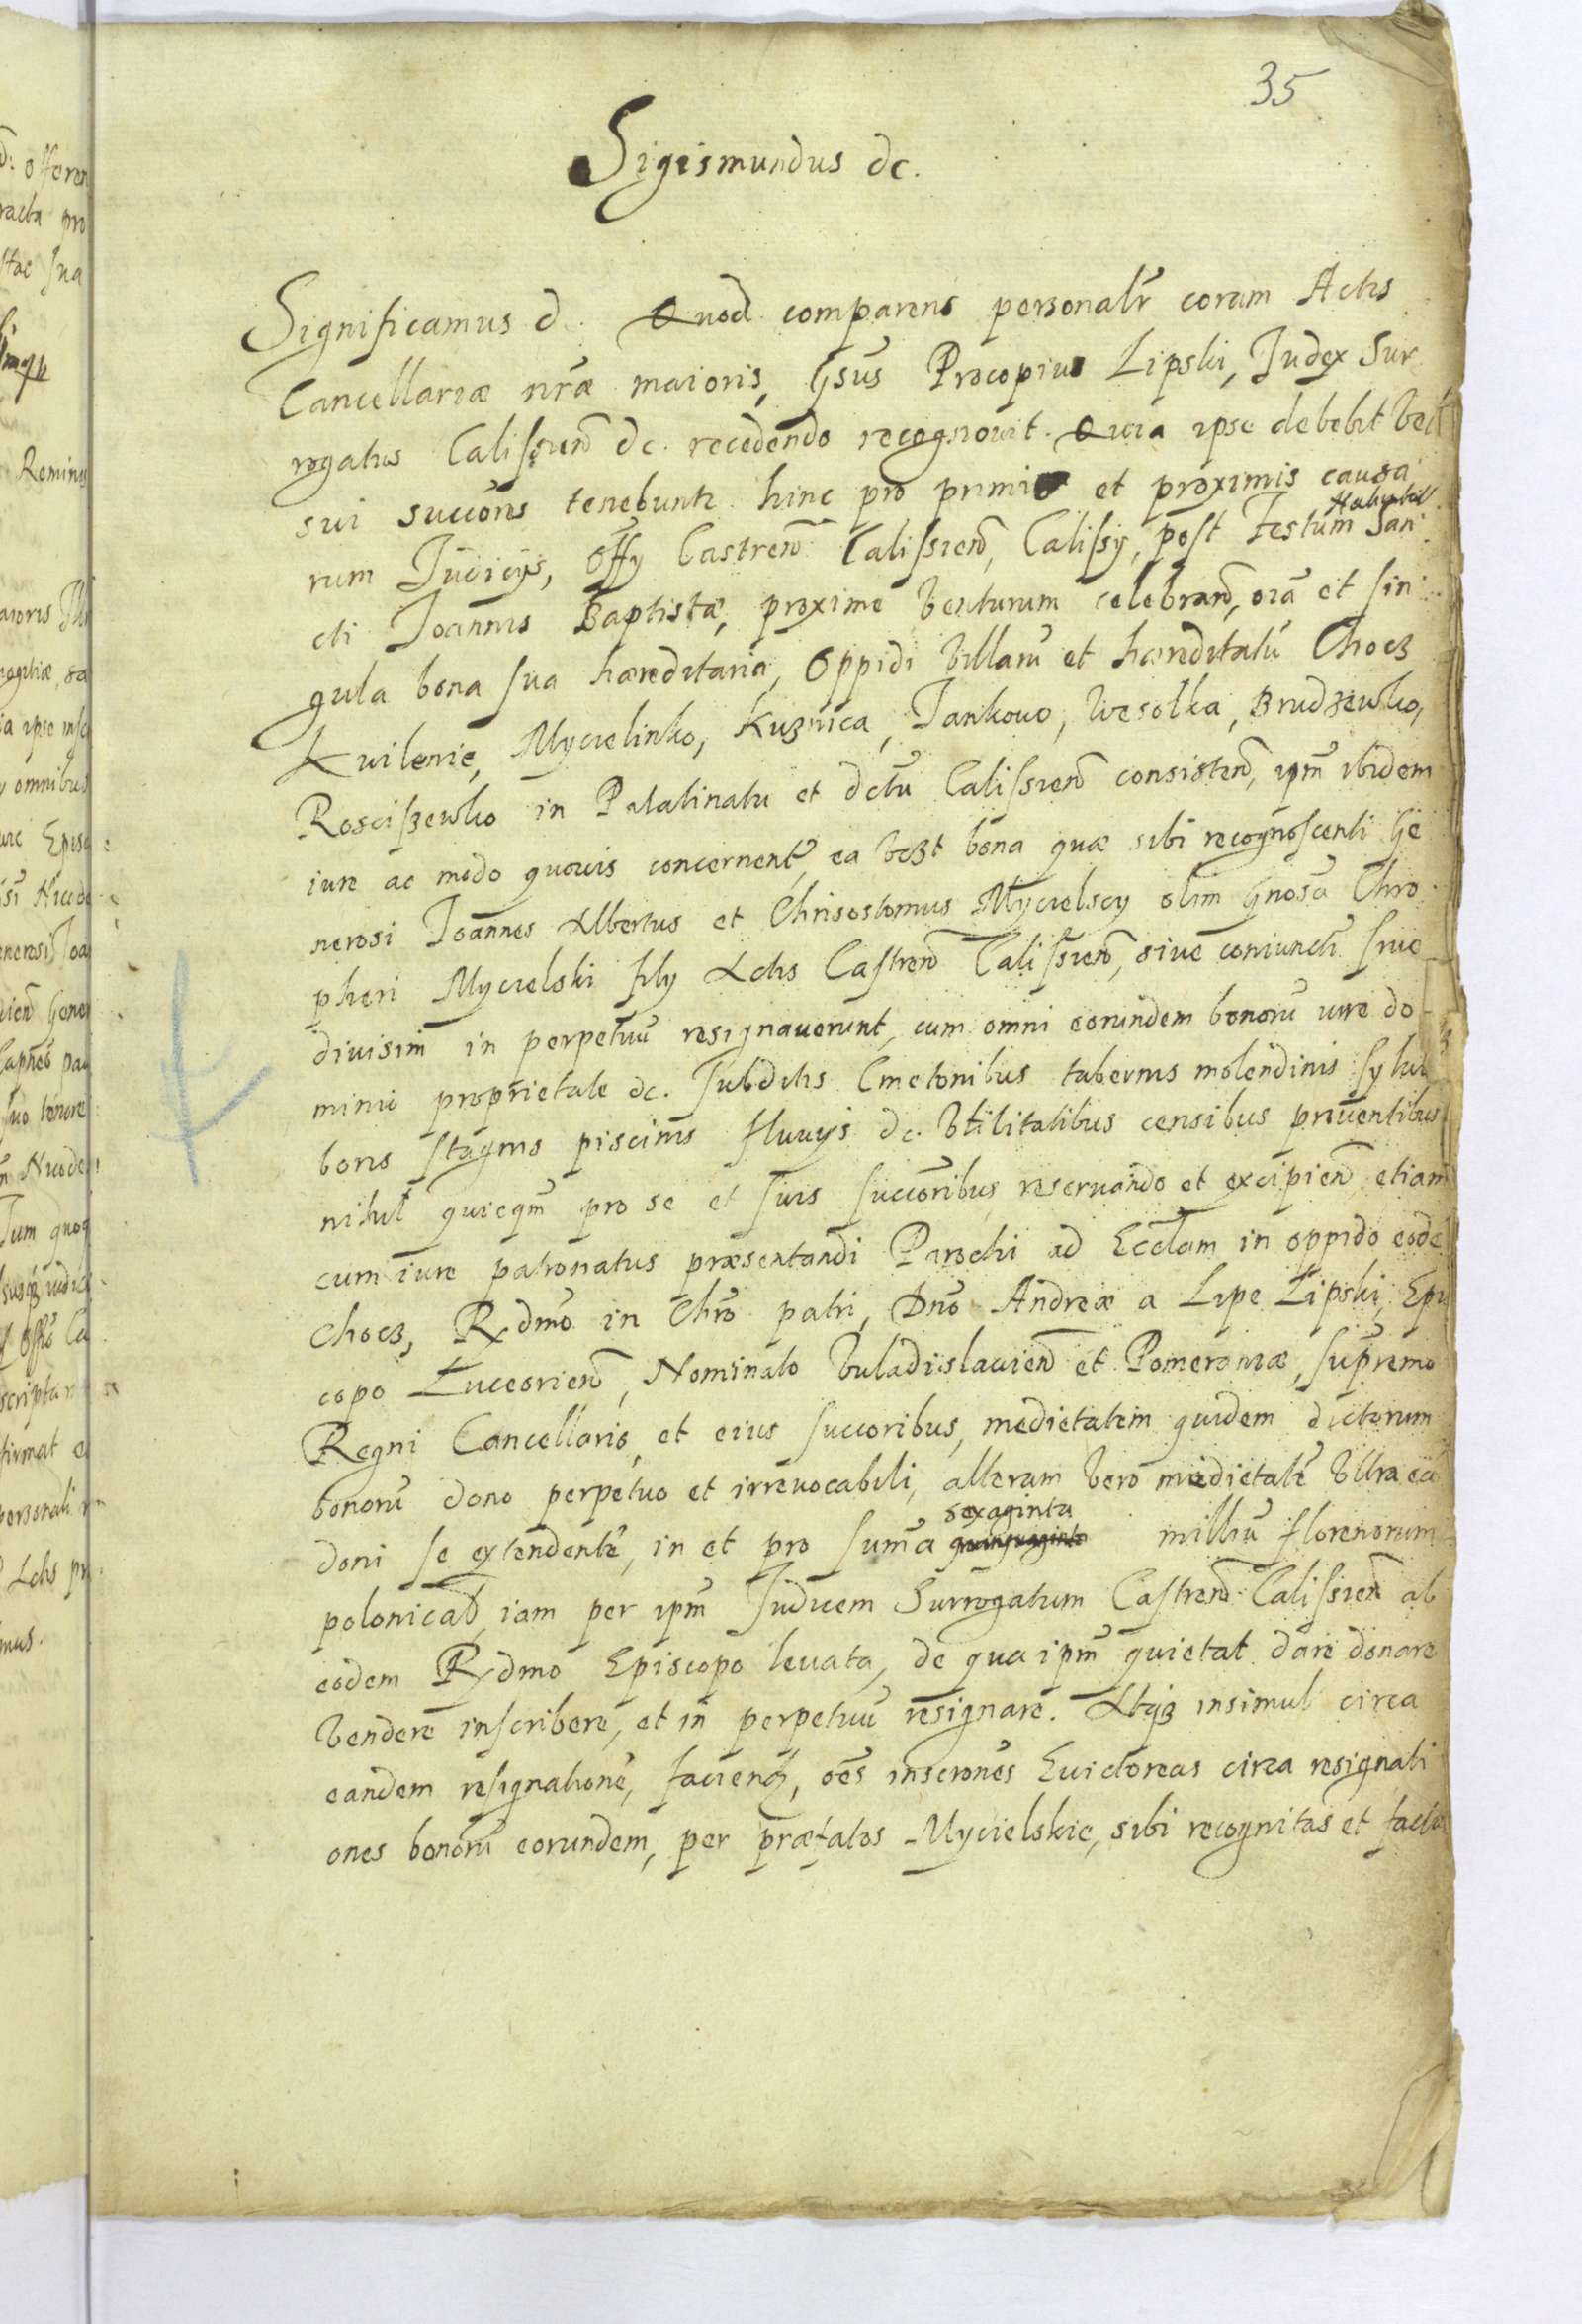 35
Sigismundus &c.
Significamus &. Quod comparens personalr̃ coram Actis
Cancellariæ nr̃æ maioris, Gsũs Procopius Lipski, Judex Sur
rogatus Calissieñ &c. recedendo recognovit. Quia ipse debebit vel
sui succõres tenebuntr hinc pro primis et proximis causa
rum Judicÿs, Offÿ Castreñ Calissieñ, Calissÿ, post Festum San
cti Joannis Baptistæ, proxime venturum celebrañ, oĩa et sin
gula bona sua hæreditaria, Oppidi villarũ et hæreditatũ Chocz
Kwilenie, Mycielinko, Kuznica, Jankowo, Wesołka, Brudzewko,
Rosciszewko in Palatinatu et dctũ Calissieñ consisteñ, ipm̃ ibidem
iure ac modo quovis concernentẽ, ea vczt bona quæ sibi recognoscenti Ge
nerosi Joannes Albertus et Chrisostomus Mycielscy olim Gnosĩ Chro
pheri Mycielski filÿ Actis Castreñ Calissieñ, sive coniunctĩ sive
divisim in perpetuũ resignaverunt, cum omni eorundem bonorũ iure do
minio proprietate &c. subditis Cmetonibus tabernis molendinis sylvis
boris stagnis piscinis fluvÿs &c. Vtilitatibus censibus provẽntibus
nihil quicqm̃ pro se et suis succõribus reservando et excipieñ etiam
cum iure patronatus præsentandi Parochi ad Eccl̃am in oppido eodẽ
Chocz, Rx̃dmo in Chr̃o patri, Dnõ Andreæ a Lipe Lipski, Epis
copo Luceorieñ, Nominato Vuladislavieñ et Pomeraniæ, Supremo
Regni Cancellario, et eius succoribus, medietatem quidem dictorum
bonorũ dono perpetuo et irrevocabili, alteram vero medietatẽ vltra eã
doni se extendentẽ, in et pro summa sexaginta millium florenorum
polonicaĺ, iam per ipm̃ Judicem Surrogatum Castreñ Calissieñ ab
eodem Rx̃dmo Episcopo levata, de qua ipm̃ quietat dare donare
vendere inscribere, et in perpetuũ resignare. Atqз insimul circa
eandem resignationẽ, facienđ, oẽs inscrõnes Evictoreas circa resignati
ones bonorũ eorundem, per præfatos Mycielskie, sibi recognitas et factas